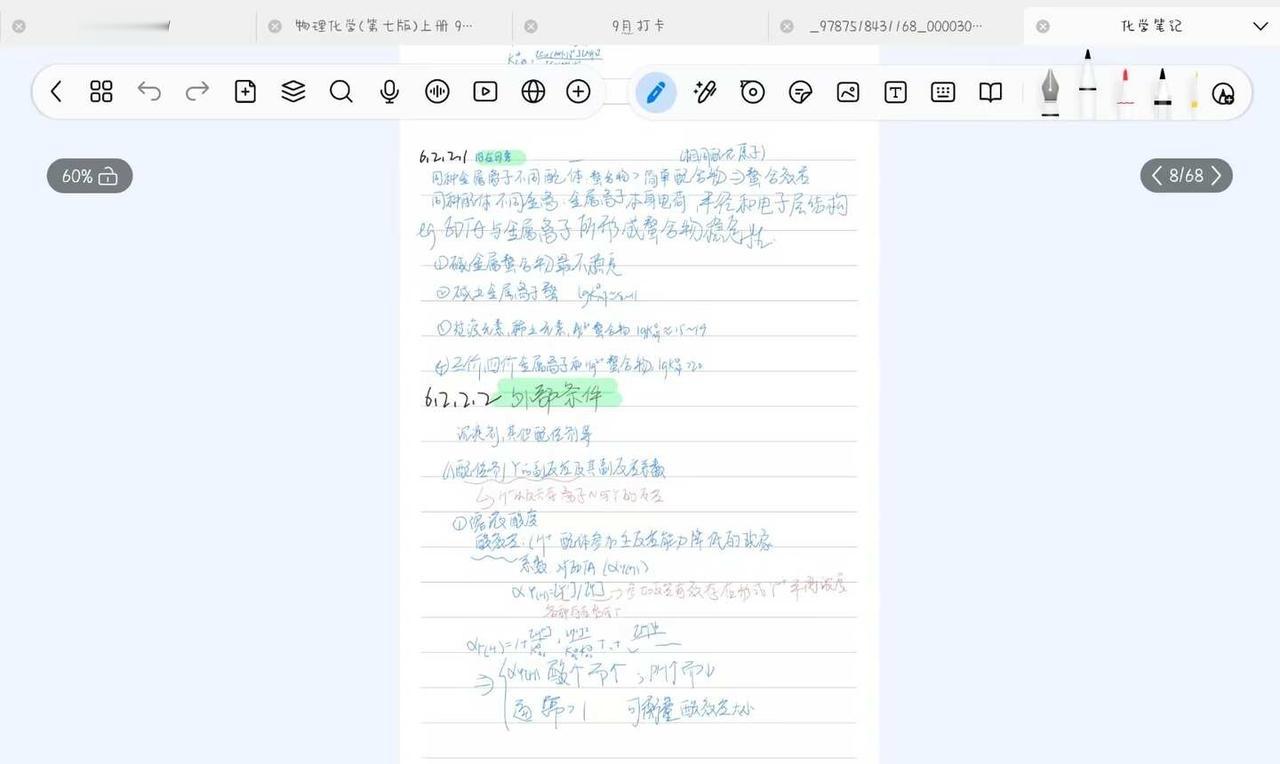 物理化学(第七版)上册 9…
9月打卡
_97875/8431/68_000030…
化学笔记
60%
8/68
6.2.2.1 内在因素
(相同配位原子)
同种金属离子不同配体:螯合物>简单配合物⇒螯合效应
同种配体不同金离:金属离子本身电荷,半径和电子层结构
eg EDTA与金属离子所形成螯合物稳定性
①碱金属螯合物最不稳定
②碱土金属离子螯
③过渡元素,稀土元素,Al³⁺螯合物 lgK ≈15~19
④三价,四价金属离子和Hg²⁺螯合物,lgK >20
6.2.2.2 外部条件
沉淀剂,其他配位剂等
(1)配位剂Y的副反应及其副反应系数
↳H⁺ 离子N与Y的反应
①溶液酸度
酸效应:(H⁺ 配体参加主反应能力降低的现象
系数 对EDTA (αY(H))
αY(H)=[Y']/[Y]
各种存在
αY(H)=1+
⇒ αY(H) 酸个而个 ; pH个而↓
通常>1 可衡量酸效应大小